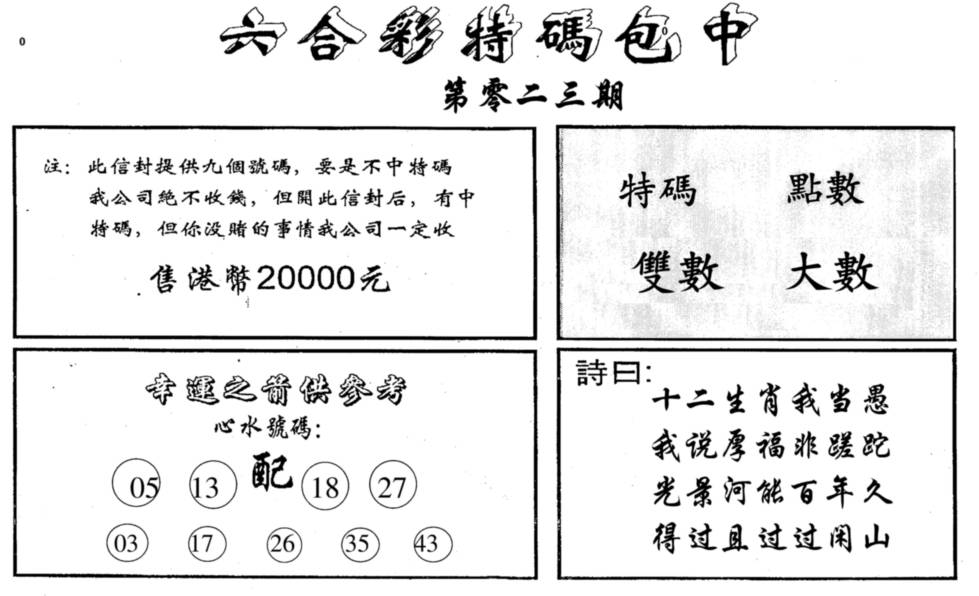 0
六合彩特碼包中
第零二三期
注：此信封提供九個號碼，要是不中特碼
我公司絕不收錢，但開此信封后，有中
特碼，但你没賭的事情我公司一定收
售港幣20000元
特碼 點數
雙數 大數
幸運之前供參考
心水號碼：
05 13 配 18 27
03 17 26 35 43
詩曰：
十二生肖我当愚
我说厚福非蹉跎
光景河能百年久
得过且过过闲山